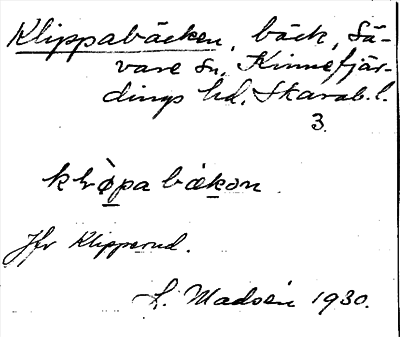 Klippabäcken, bäck, Sä-
vare sn, Kinnefjär-
dings hd, Skarab. l.
3.
klı̀pa bäkən
Jfr Klipperud.
L. Madsén 1930.